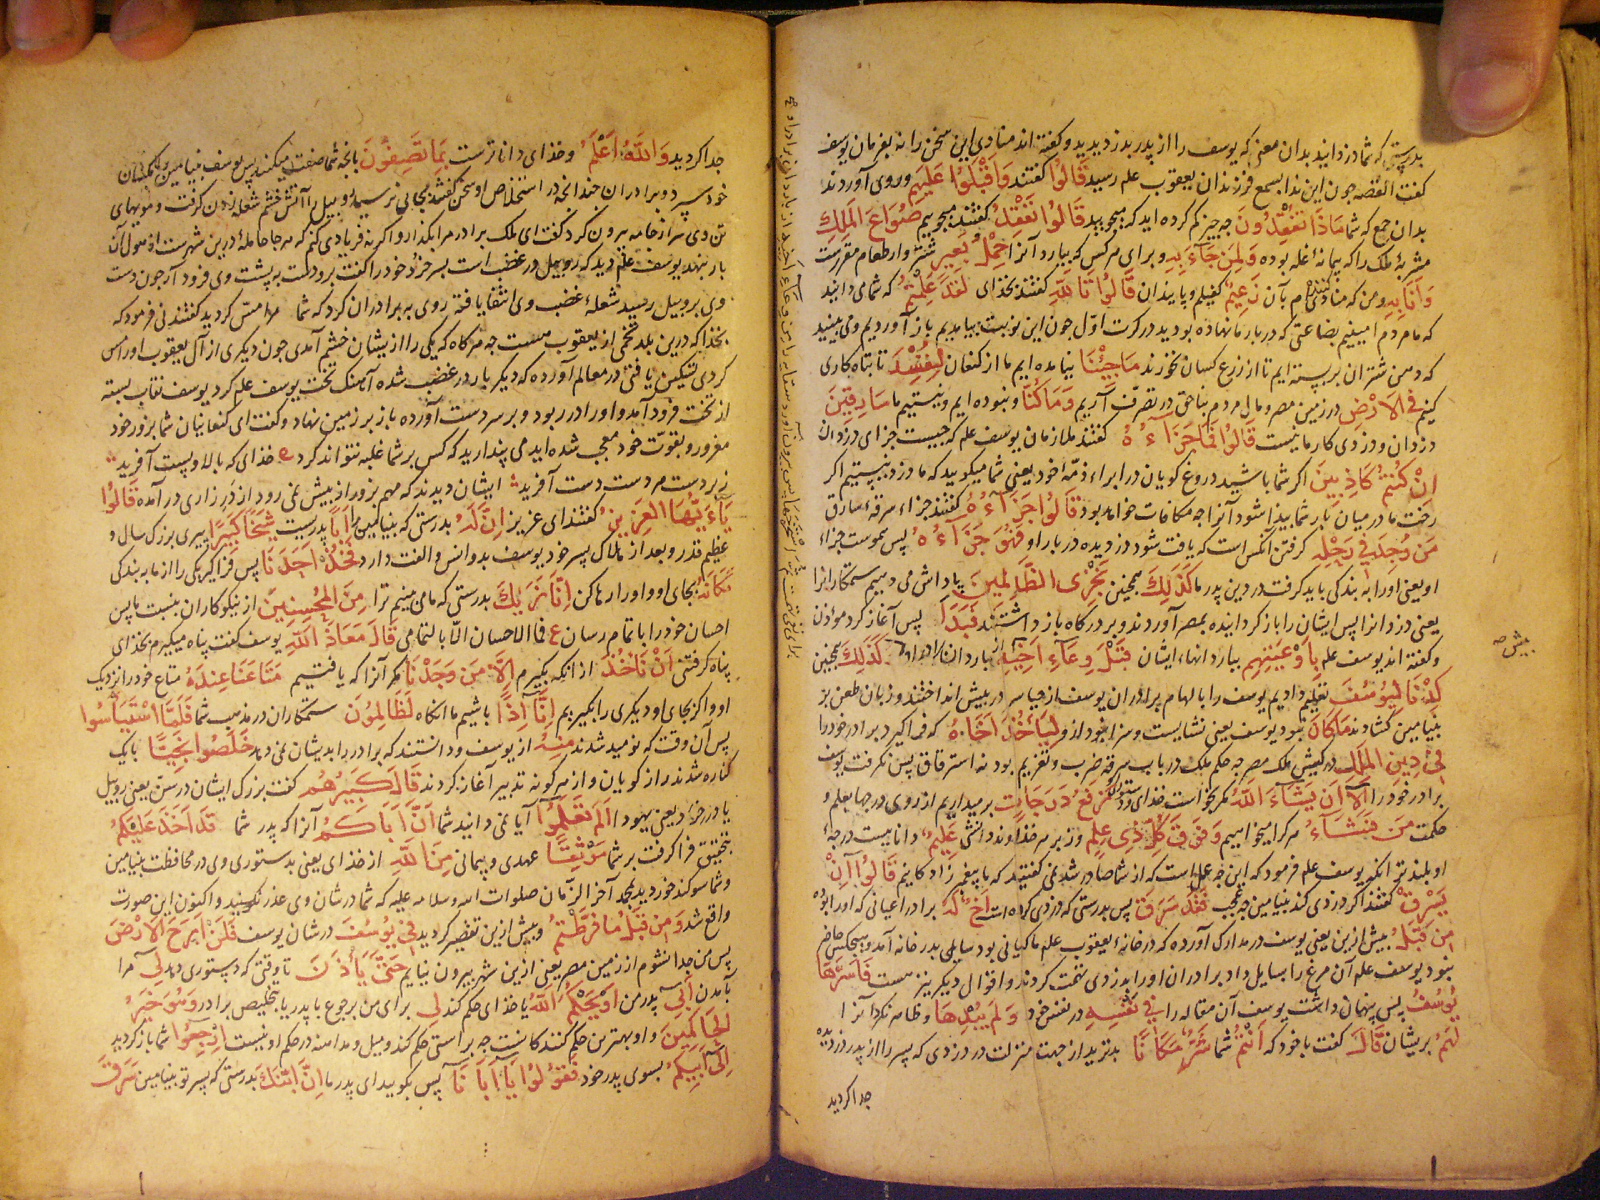 بدرستی که شما دزدانید بدان معنی که یوسف را از پدر بدزدیدید و گفته اند منادی این سخن را نه بفرمان یوسف
گفت القصه چون این ندا بسمع فرزندان یعقوب علم رسید قَالُوا گفتند وَاَقْبَلُوا عَلَیهِم و روی آوردند
بدان جمع که شما مَاذَا تَفْقِدُونَ چه چیز گم کرده اید که میجویید قَالُوا نَفْقِدُ گفتند میجوییم صُوَاعَ الْمَلِكِ
مشربهٔ ملک را که پیمانهٔ غله بوده وَلِمَنْ جَآءَ بِهِ و برای هر کس که بیارد آنرا حِمْلُ بَعِیرٍ شتروار طعام مقررست
وَاَنَا بِهِ و من که منادی ام بآن زَعِیمٌ کفیلم و پایندان قَالُوا تَاللّٰهِ گفتند بخدای لَقَدْ عَلِمْتُمْ که شما می دانید
که ما مردم امینیم بضاعتی که در بار ما نهاده بودید در کرت اول چون این نوبت بیامدیم باز آوردیم و می بینید
که دهن شتران بربسته ایم تا از زرع کسان نخورند مَا جِئْنَا نیامده ایم ما از کنعان لِنُفْسِدَ تا تباه کاری
کنیم فِی الْاَرْضِ در زمین مصر و مال مردم بناحق در تصرف آریم وَمَا كُنَّا و نبوده ایم و نیستیم ما سَارِقِینَ
دزدان و دزدی کار ما نیست قَالُوا فَمَا جَزَآءُهُ گفتند ملازمان یوسف علم که چیست جزای دزدان
اِنْ كُنْتُمْ كَاذِبِینَ اگر شما باشید دروغ گویان در ابراء ذمّهٔ خود یعنی شما میگویید که ما دزد نیستیم اگر
رخت ما در میان بار شما پیدا شود آنرا چه مکافات خواهد بود قَالُوا جَزَآءُهُ گفتند جزاء سرقهٔ سارق
مَن وُجِدَ فِی رَحْلِهِ گرفتن آنکس است که یافت شود دزدیده در بار او فَهُوَ جَزَآءُهُ پس هموست جزاء
او یعنی او را به بندگی باید گرفت در دین پدر ما كَذٰلِكَ همچنین نَجْزِی الظَّالِمِینَ پاداش می دهیم ستمکارانرا
یعنی دزدانرا پس ایشان را باز گردانیده بمصر آوردند و بر درگاه باز داشتند فَبَدَاَ پس آغاز کرد موذن
و گفته اند یوسف علم بِاَوْعِیَتِهِم بباردانهاء ایشان قَبْلَ وِعَآءِ اَخِیهِ كَذٰلِكَ همچنین
كِدْنَا لِیُوسُفَ تعلیم دادیم یوسف را بالهام برادران یوسف از حیا سر در پیش انداختند و زبان طعن بر
بنیامین گشادند مَا كَانَ نبود یوسف یعنی نشایست و سزا نبود ازو لِیَاْخُذَ اَخَاهُ که فرا گیرد برادر خود را
فِی دِینِ الْمَلِكِ در کیش ملک مصر چه حکم ملک در باب سرقه ضرب و تغریم بود نه استرقاق پس نگرفت یوسف
برادر خود را اِلَّا اَن یَشَآءَ اللّٰهُ مگر بخواست خدای نَرْفَعُ دَرَجَاتٍ برمیداریم از روی درجها بعلم و
حکمت مَن نَشَآءُ هر کرا میخواهیم وَفَوْقَ كُلِّ ذِی عِلْمٍ و زبر هر خداوند دانش عَلِیمٌ دانا نیست درجهٔ
او بلند تر آنکه یوسف علم فرمود که این چه عمل است که از شما صادر شد نمی گفتید که ما پیغمبر زادگانیم قَالُوا اِنْ
یَسْرِقْ گفتند اگر دزدی کند بنیامین چه عجب فَقَدْ سَرَقَ پس بدرستی که دزدی کرده است اَخٌ لَهُ برادر اعیانی که او را بوده
مِن قَبْلُ پیش ازین یعنی یوسف در مدارک آورده که در خانهٔ یعقوب علم ماکیانی بود سایلی بدر خانه آمد و هیچکس حاضر
نبود یوسف علم آن مرغ را بسایل داد برادران او را بدزدی تهمت کردند و اقوال دیگر نیز هست فَاَسَرَّهَا
یُوسُفُ پس پنهان داشت یوسف آن مقاله را فِی نَفْسِهِ در نفس خود وَلَمْ یُبْدِهَا و ظاهر نکرد آنرا
لَهُمْ بر ایشان قَالَ گفت با خود که اَنْتُمْ شما شَرٌّ مَكَانًا بدترید از جهت منزلت در دزدی که پسر را از پدر دزدیده
جدا کردید
جدا کردید وَاللّٰهُ اَعْلَمُ و خدای دانا ترست بِمَا تَصِفُونَ بآنچه شما صفت میکنید پس یوسف بنیامین را بکسان
خود سپرد و برادران چندانچه در استخلاص او سخن گفتند بجائی نرسید روبیل را آتش خشم شعله زدن گرفت و مویهای
تن وی سر از جامه بیرون کرد گفت ای ملک برادر ما را بگذار و اگر نه فریادی کنم که هر جا حامله درین شهرست از هول آن
بار بنهد یوسف علم دید که روبیل در غضب است پسر خرد خود را گفت برو دست بر پشت وی فرود آر چون دست
وی بروبیل رسید شعلهٔ غضب وی انتفا یافته روی به برادران کرد که شما مرا مس کردید گفتند نی فرمود که
بخدا که درین بلد تخمی از یعقوب هست چه هر گاه که یکی را از یشان خشم آمدی چون دیگری از آل یعقوب او را مس
کردی تسکین یافتی در معالم آورده که دیگر بار در غضب شده آهنگ تخت یوسف علم کرد یوسف نقاب بسته
از تخت فرود آمد و او را در ربود و بر سر دست آورده باز بر زمین نهاد و گفت ای کنعانیان شما بزور خود
مغرور و بقوّت خود معجب شده اید می پندارید که کس بر شما غلبه نتواند کرد ع خدای که بالا و پست آفرید
زبردست هر دست دست آفرید ایشان دیدند که مهم بزور از پیش نمی رود از در زاری در آمده قَالُوا
یَآاَیُّهَا الْعَزِیزُ گفتند ای عزیز اِنَّ لَهُ بدرستی که بنیامین را اَبًا پدریست شَیْخًا كَبِیرًا پیری بزرگ سال و
عظیم قدر و بعد از هلاک پسر خود یوسف بدو انس و الفت دارد فَخُذْ اَحَدَنَا پس فرا گیر یکی را از ما به بندگی
مَكَانَهُ بجای او و او را رها کن اِنَّا نَرٰیكَ بدرستی که ما می بینیم ترا مِنَ الْمُحْسِنِینَ از نیکو کاران بنسبت ما پس
احسان خود را باتمام رسان ع فما الاحسان الّا بالتمامی قَالَ مَعَاذَ اللّٰهِ یوسف گفت پناه میگیرم بخدای
پناه گرفتنی اَنْ نَاْخُذَ از آنکه بگیرم اِلَّا مَن وَجَدْنَا مگر آنرا که یافتیم مَتَاعَنَا عِنْدَهُ متاع خود را نزدیک
او و اگر بجای او دیگری را بگیریم اِنَّآ اِذًا باشیم ما آنگاه لَظَالِمُونَ ستمکاران در مذهب شما فَلَمَّا اسْتَیْاَسُوا
پس آن وقت که نومید شدند مِنْهُ از یوسف و دانستند که برادر را بدیشان نمی دهد خَلَصُوا نَجِیًّا بایک
کناره شدند راز گویان و از هر گونه تدبیر آغاز کردند قَالَ كَبِیرُهُم گفت بزرگ ایشان در سن یعنی روبیل
یا در خرد یعنی یهودا اَلَمْ تَعْلَمُوا آیا نمی دانید شما اَنَّ اَبَاكُمْ آنرا که پدر شما قَدْ اَخَذَ عَلَیْكُمْ
بتحقیق فرا گرفت بر شما مَوْثِقًا عهدی و پیمانی مِنَ اللّٰهِ از خدای یعنی بدستوری وی در محافظت بنیامین
و شما سوگند خوردید بمحمد آخر الزمان صلوات الله و سلامه علیه که شما در شان وی غدر نکنید و اکنون این صورت
واقع شد وَمِن قَبْلُ مَا فَرَّطْتُمْ و پیش ازین تقصیر کردید فِی یُوسُفَ در شان یوسف فَلَنْ اَبْرَحَ الْاَرْضَ
پس من جدا نشوم از زمین مصر یعنی ازین شهر بیرون نیایم حَتّٰی یَاْذَنَ تا وقتی که دستوری دهد لِی مرا
بآمدن اَبِی پدر من اَوْ یَحْكُمَ اللّٰهُ یا خدای حکم کند لِی برای من برجوع با پدر یا بتخلیص برادر وَهُوَ خَیْرُ
الْحَاكِمِینَ و او بهترین حکم کنندگانست چه براستی حکم کند و میل و مداهنه در حکم او نیست اِرْجِعُوا شما باز گردید
اِلٰی اَبِیكُمْ بسوی پدر خود فَقُولُوا یَآاَبَانَا پس بگویید ای پدر ما اِنَّ ابْنَكَ بدرستی که پسر تو بنیامین سَرَقَ